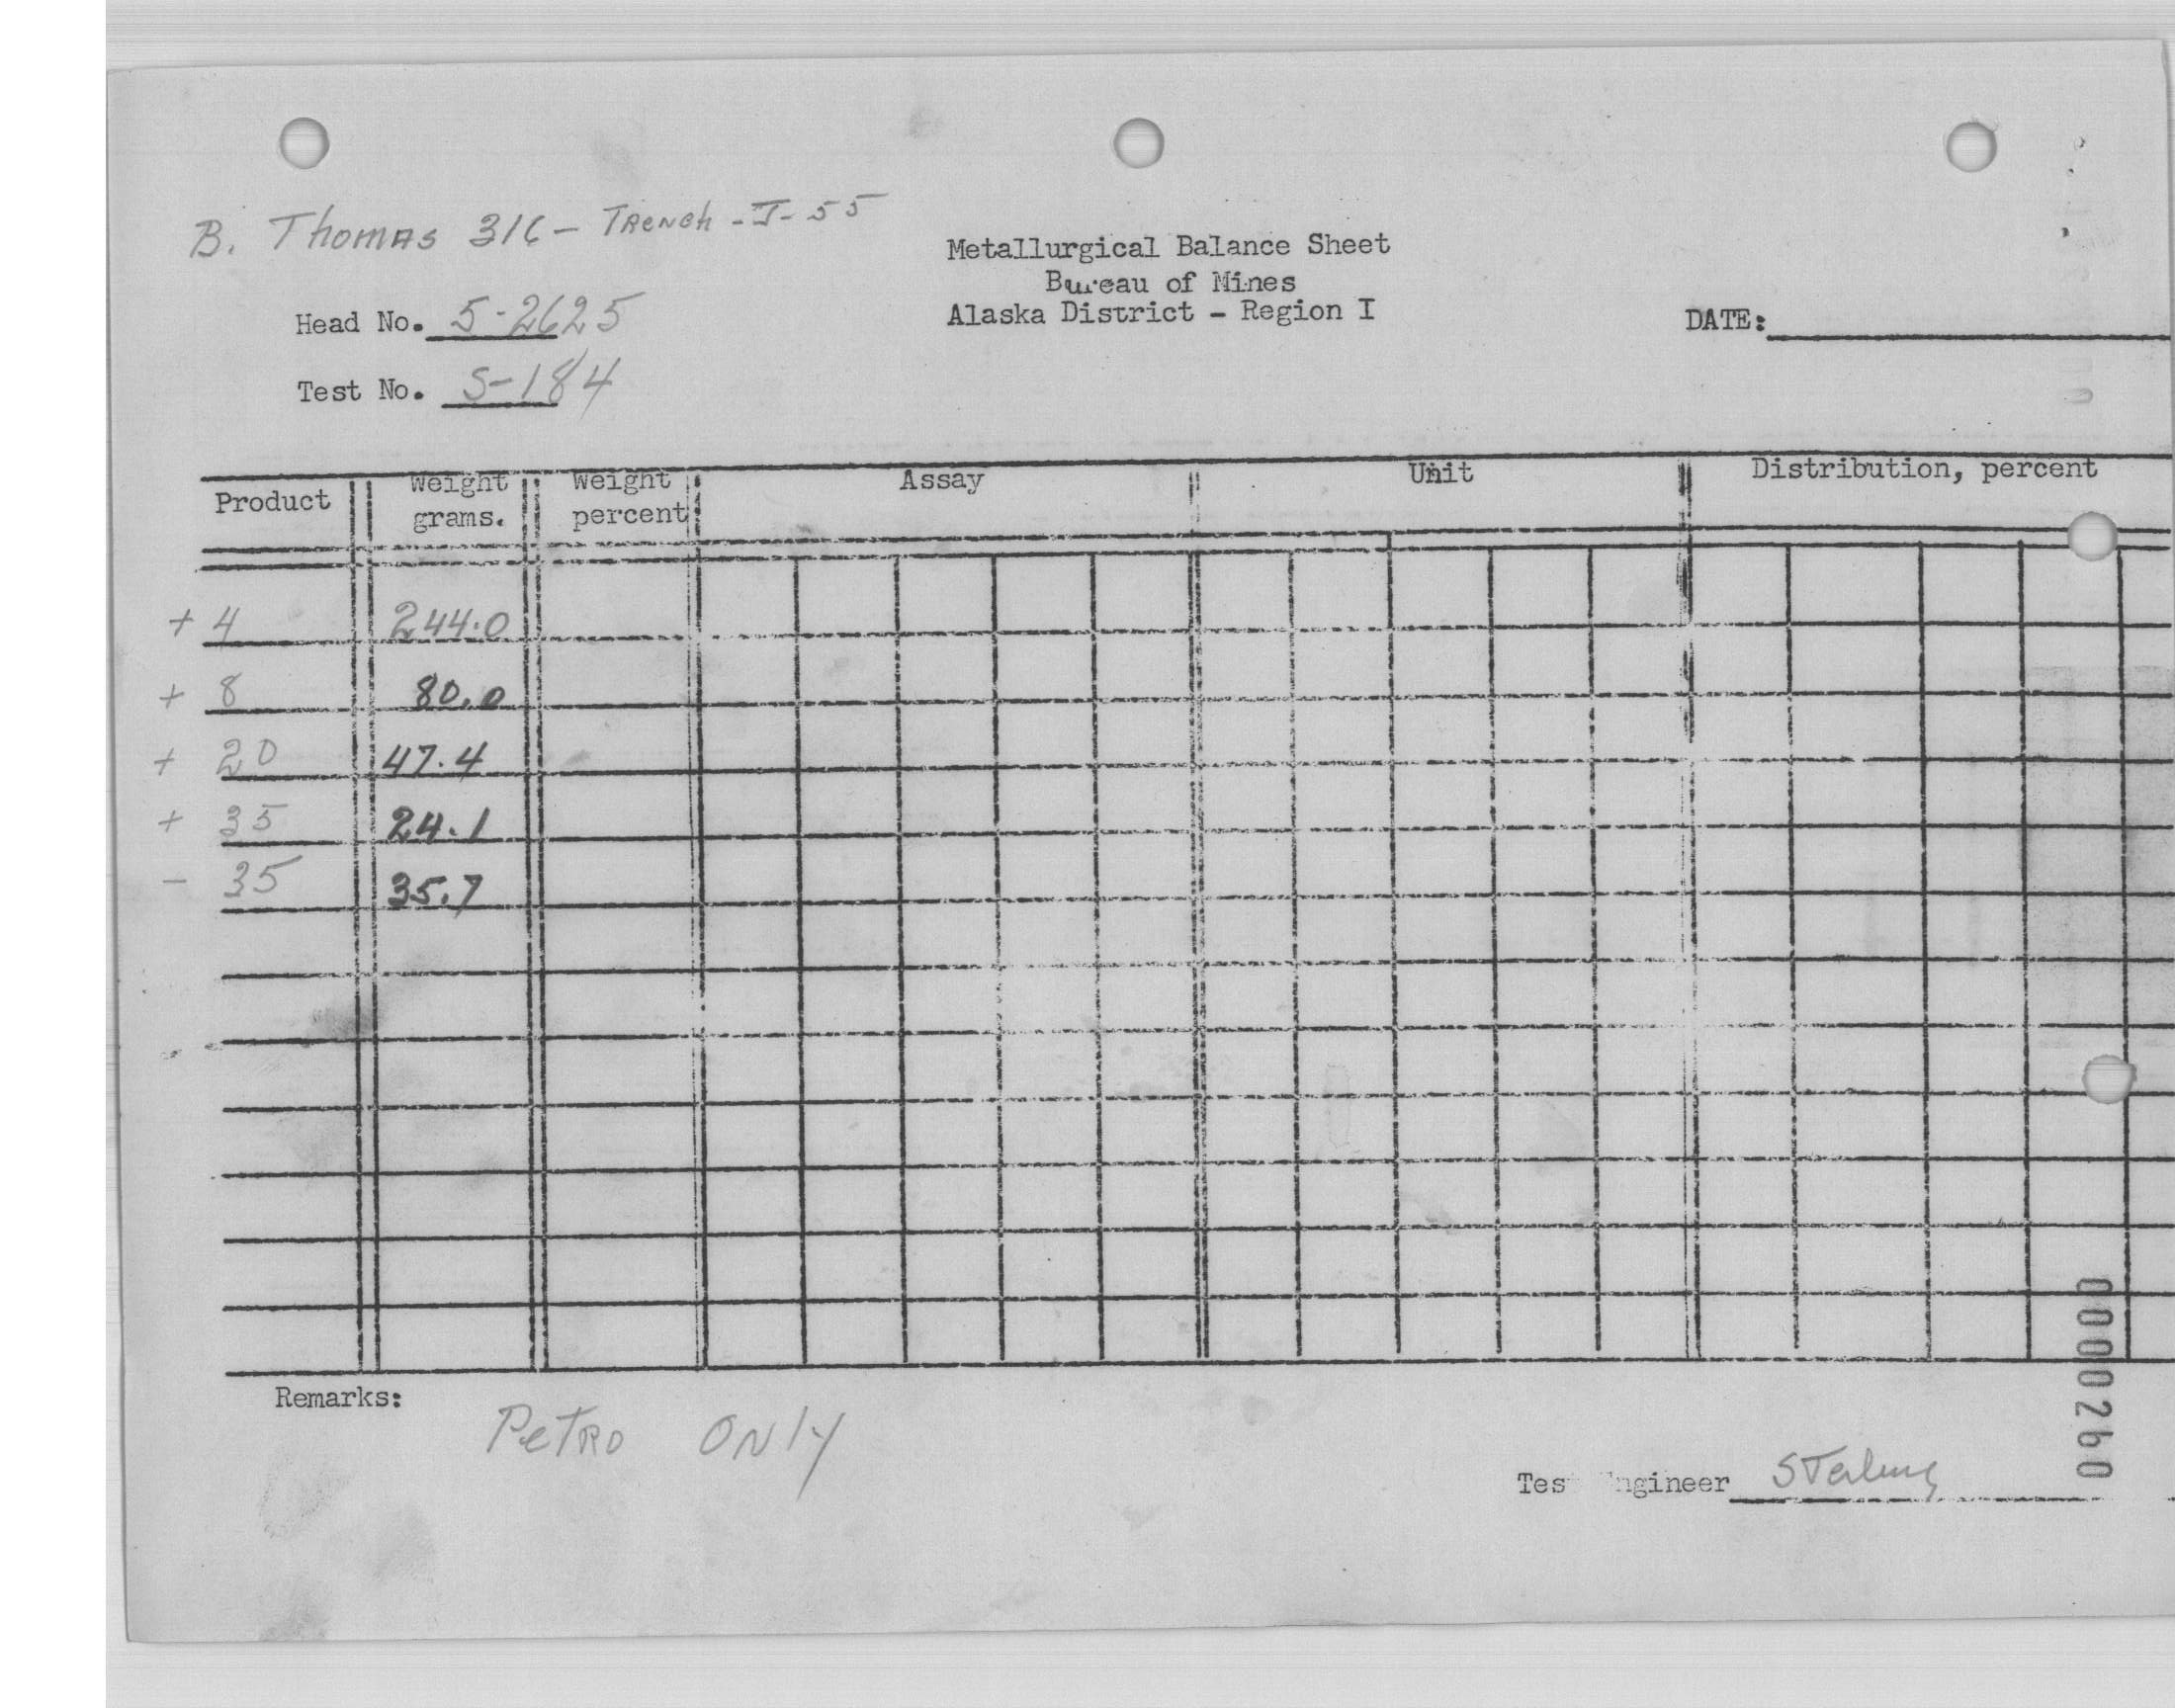 B. Thomas 316 - Trench - J - 55
Metallurgical Balance Sheet
Bureau of Mines
Alaska District - Region I
Head No. 5-2625
DATE:
Test No. S-184
Product
Weight grams.
Weight percent
Assay
Unit
Distribution, percent
+ 4 244.0
+ 8 80.0
+ 20 47.4
+ 35 24.1
- 35 35.7
Remarks:
Petro Only
Test Engineer Sterling
0000260